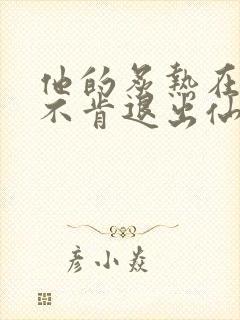 他的炙热在
不肯退出仙
彦小焱